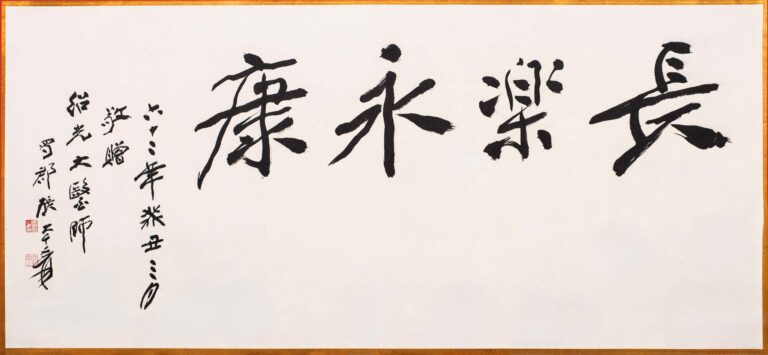 長樂永康
六十二年癸丑三月
敬贈
紹光大醫師
蜀郡張大千爰